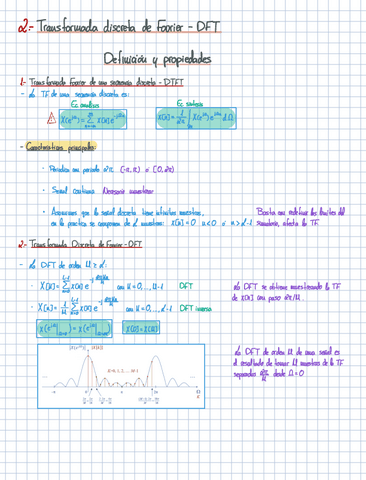 2.- Transformada discreta de Fourier - DFT
Definición y propiedades
1.- Transformada Fourier de una secuencia discreta - DTFT
- La TF de una secuencia discreta es:
Ec análisis
Ec síntesis
- Características principales:
· Periódica con periodo 2π (-π, π) o [0, 2π)
· Señal continua Necesario muestrear
· Asumimos que la señal discreta tiene infinitas muestras.
en la práctica se componen de L muestras: x[n]=0 n<0 o n>L-1
Basta con redefinir los límites del
sumatorio, afecta la TF
2.- Transformada Discreta de Fourier - DFT
- La DFT de orden M ≥ L:
con k=0,...,M-1 DFT
DFT inversa
La DFT se obtiene muestreando la TF
de x[n] con paso 2π/M.
X(0)=X[0]
La DFT de orden M de una señal es
el resultado de tomar M muestras de la TF
separadas 2π/M desde Ω=0